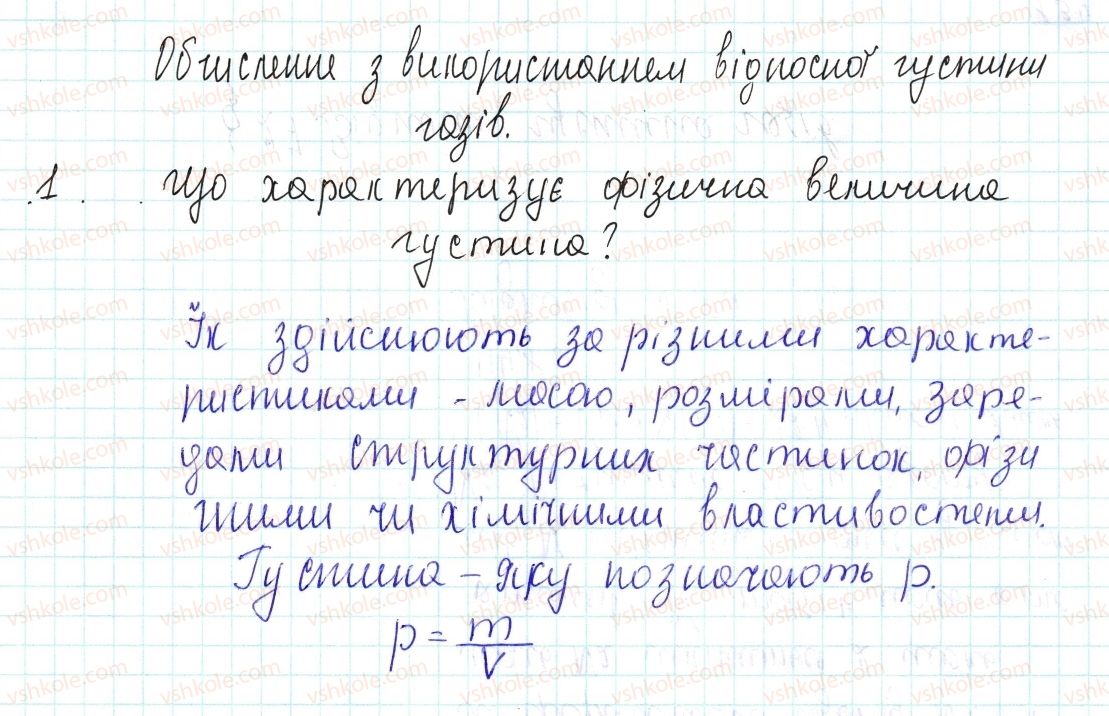 Обчислення з використанням відносної густини
газів.
1. Що характеризує фізична величина
густина?
Їх здійснюють за різними характе-
ристиками - масою, розмірами, заря-
дами структурних частинок, фізи
чними чи хімічними властивостями.
Густина - яку позначають p.
p = m/V